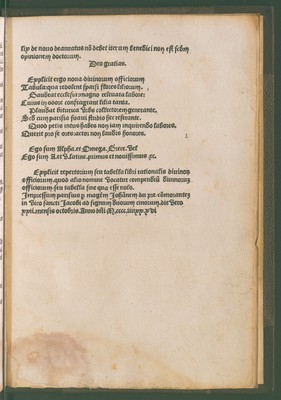 sup de nouo deauratus nō debet iterum benedici non est scđm
opinionem doctorum.
Deo gratias.
Explicit ergo noua diuinorum officiorum
Tabula: qua redolent sparsi flores
Gaudeat ecclesia: magno resonata labore:
Cuius in odore tanta.
Plaudat futurus collectorem generante,
parisia suaui studio hec referante.
Quod petis intus habes non iam inquirendo labores.
Querit pro se ores auctor non laudes honores.
Ego sum Alpha et Omega. Grece. vel
Ego sum A et v latine. primus et nouissimus &c.
Explicit repertorium seu tabella libri rationalis diuinoꝝ
officiorum. quod alio nomine vocatur compendiū diuinorum
officiorum seu tabella sine qua esse nolo.
Impressum parisius p magr̄m Johānem du pre cōmorantem
in vico sancti Jacobi ad signum duorum cinorum. die vero
xxvii. mensis octobris. Anno